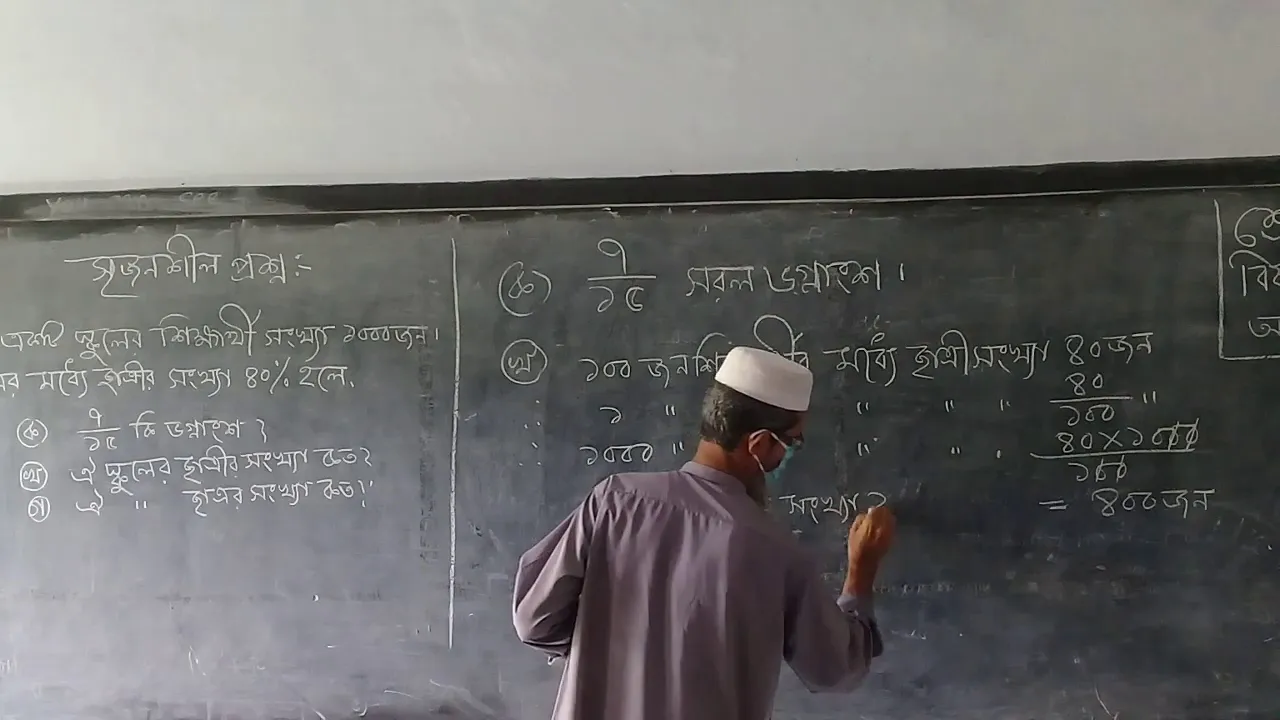 সৃজনশীল প্রশ্ন:-
একটি স্কুলের শিক্ষার্থী সংখ্যা ১০০০জন।
মধ্যে ছাত্রীর সংখ্যা ৪০% হলে,
(ক) ৭/১৫ কি ভগ্নাংশ?
(খ) ঐ স্কুলের ছাত্রীর সংখ্যা কত?
(গ) ঐ " ছাত্রর সংখ্যা কত?
(ক) ৭/১৫ সরল ভগ্নাংশ।
(খ) ১০০ জন মধ্যে ছাত্রীসংখ্যা ৪০জন
∴ ১ " " " " ৪০/১০০ "
∴ ১০০০ " " " " ৪০×১০০০/১০০
= ৪০০জন
সংখ্যা ১